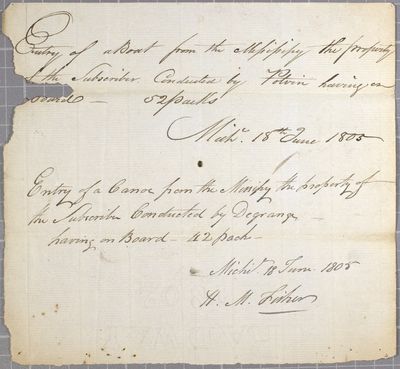 Entry of a Boat from the Missisipy the property
of the Subscriber Conducted by Potvin having on
Board — 52 packs
Michc. 18th June 1805
Entry of a Canoe from the Missipy the property of
the Subscriber Conducted by Degrange
having on Board — 42 pack —
Michc. 18 June 1805
H. M. Fisher